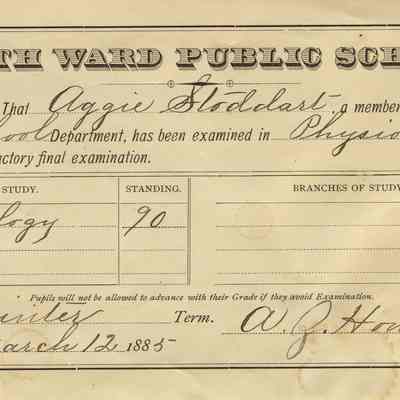 TH WARD PUBLIC SCH
That Aggie Stoddart a member
ool Department, has been examined in Physio
actory final examination.
STUDY. STANDING. BRANCHES OF STUDY
logy 90
Pupils will not be allowed to advance with their Grade if they avoid Examination.
inter Term. A. J. Ho
arch 12 1885